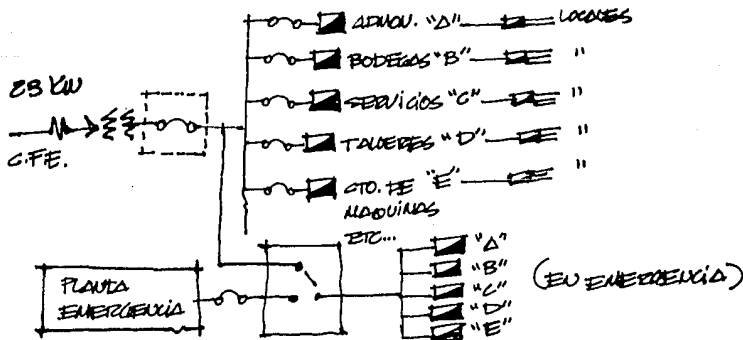 ADMON. "A" LOCALES
BODEGAS "B" "
23 KW
SERVICIOS "C" "
C.F.E.
TALLERES "D" "
CTO. DE "E" "
MAQUINAS
ETC...
PLANTA
EMERGENCIA
"A"
"B"
"C"
"D"
"E"
(EN EMERGENCIA)